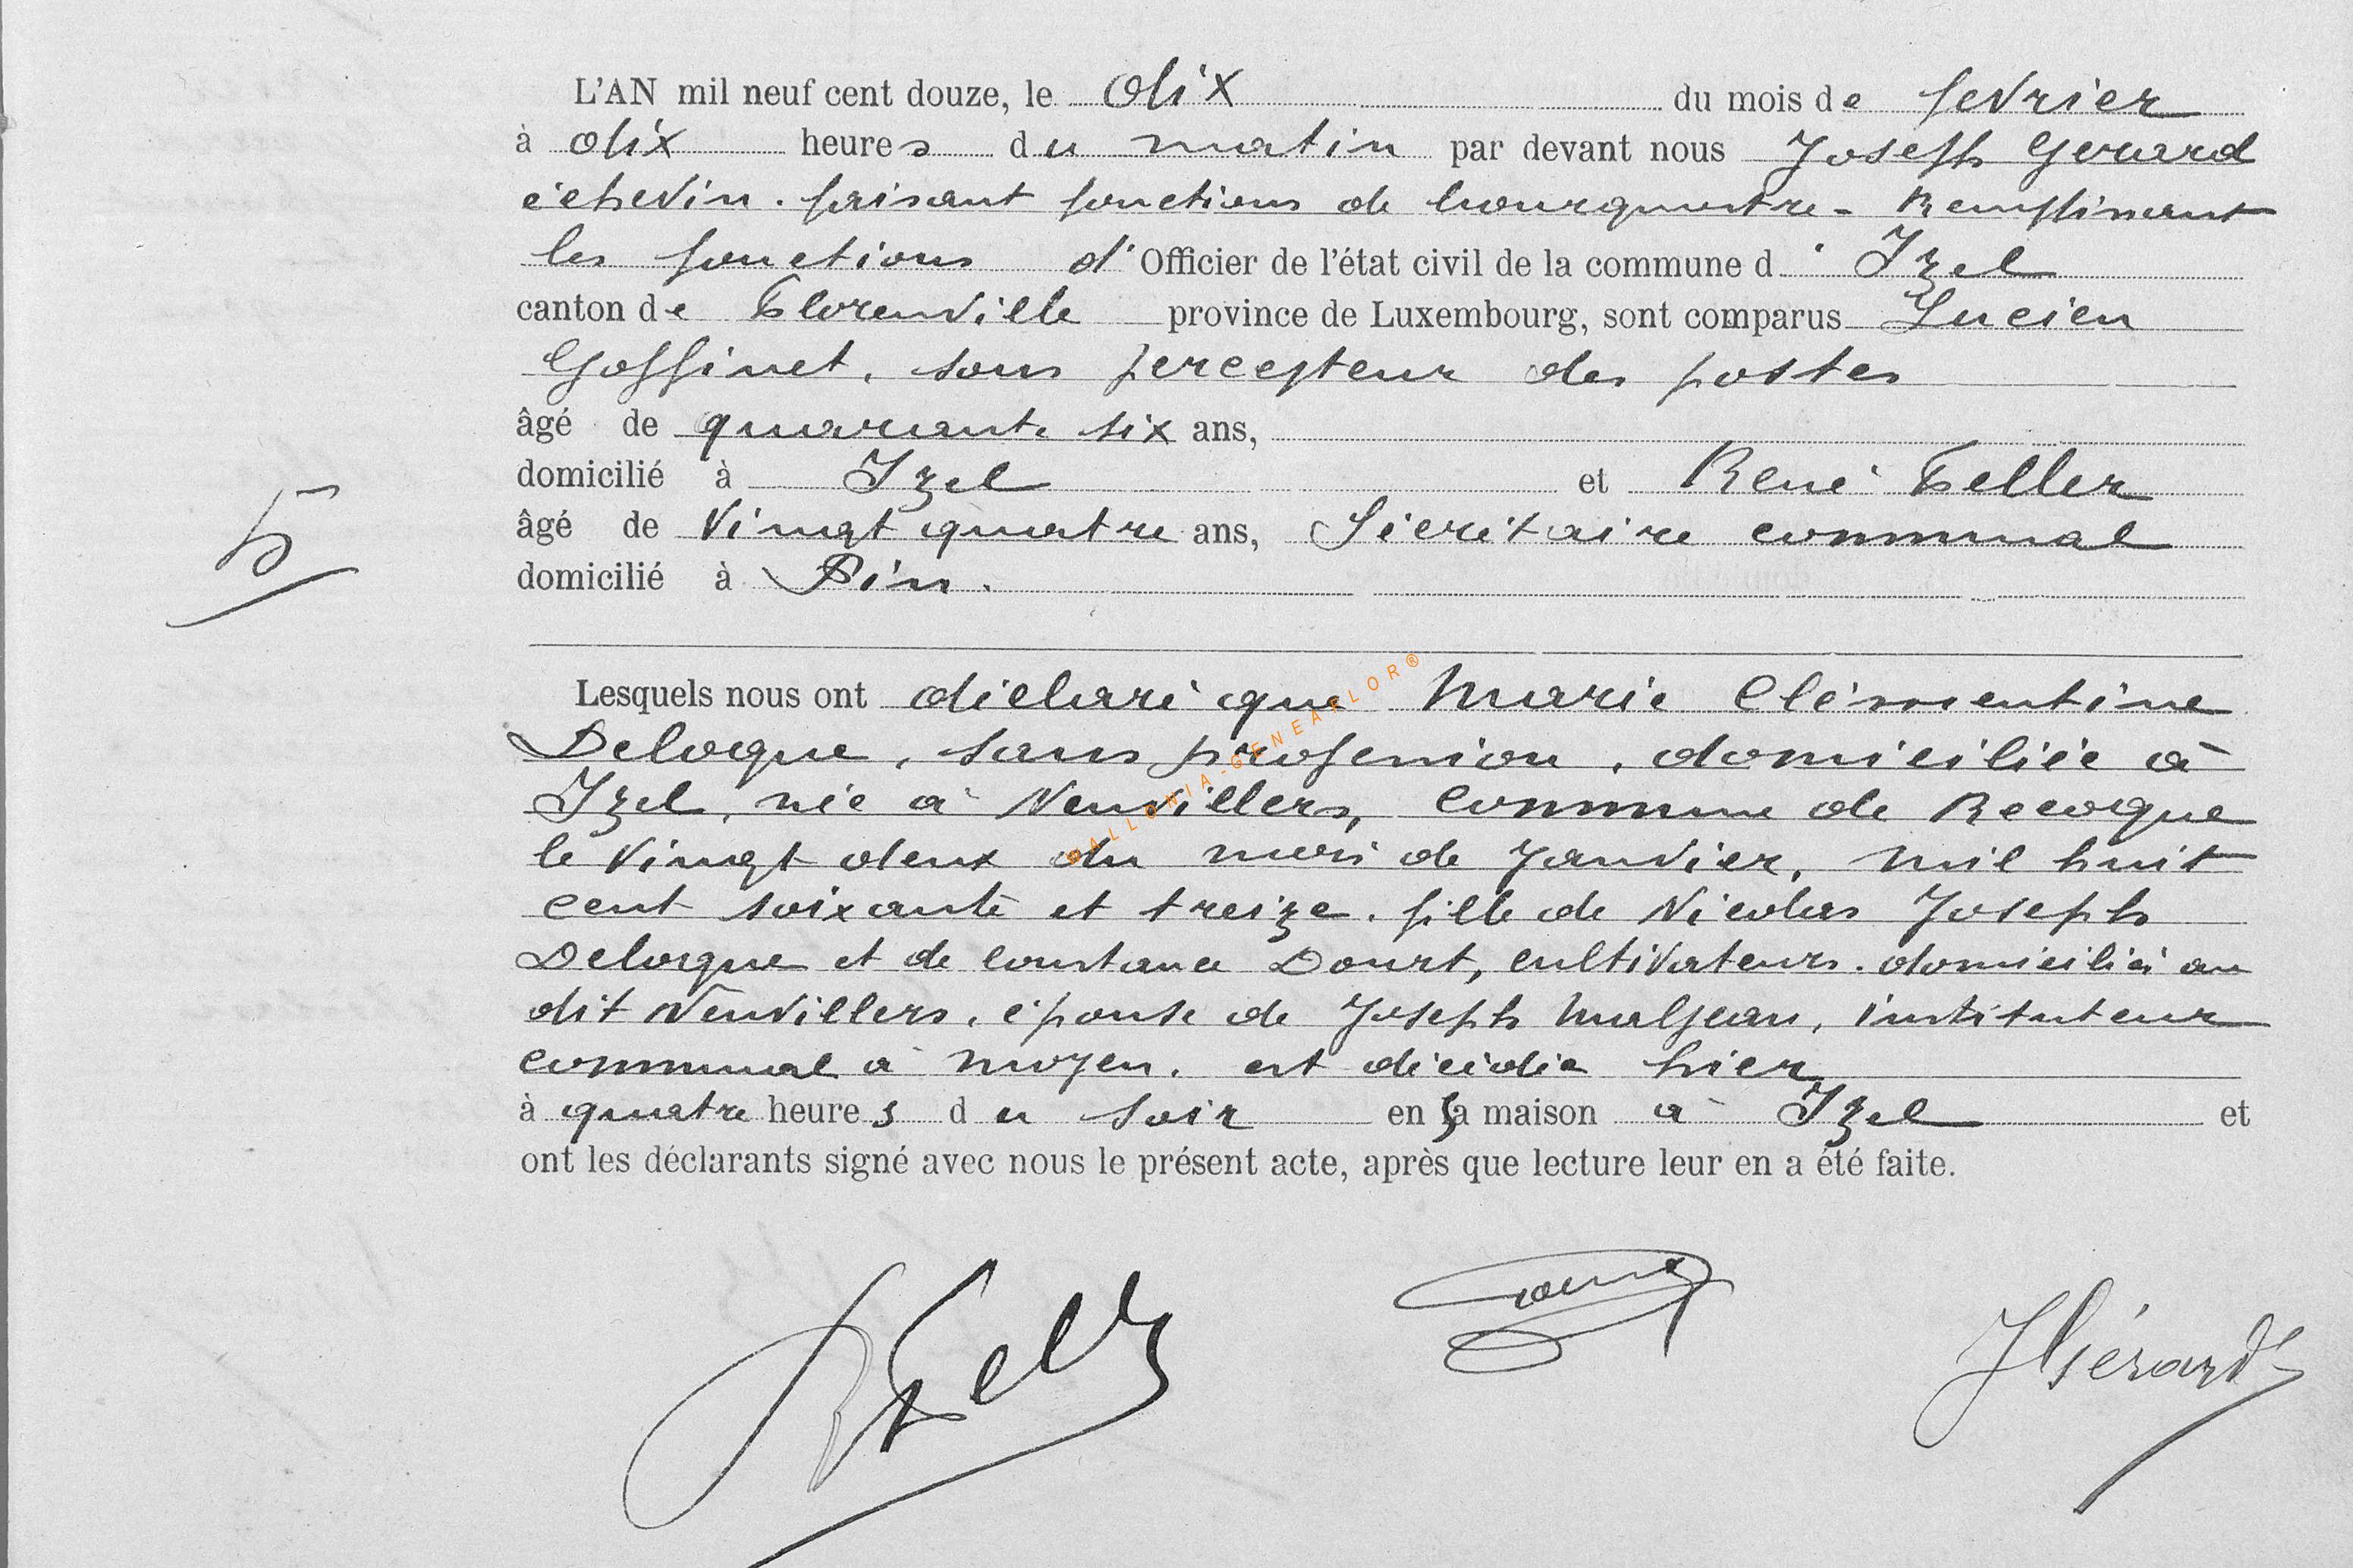 L'AN mil neuf cent douze, le dix du mois de fevrier
à dix heures du matin par devant nous Joseph Gerard
échevin. faisant fonctions de bourgmestre - Remplissant
les fonctions d'Officier de l'état civil de la commune d' Izel
canton de Florenville province de Luxembourg, sont comparus Lucien
Goffinet, sous percepteur des postes
âgé de quarante six ans,
domicilié à Izel et René Feller
âgé de vingt quatre ans, Sécrétaire communal
domicilié à Pin.
5
Lesquels nous ont déclaré que Marie Clémentine
Delogne, sans profession, domiciliée à
Izel, née à Neuvillers, Commune de Recogne
le vingt deux du mois de Janvier, mil huit
cent soixante et treize. fille de Nicolas Joseph
Delogne et de Constance Dourt, cultivateurs. domiciliés au
dit Neuvillers, épouse de Joseph Maljean, instituteur
communal à Moyen. est décédée hier
à quatre heures du soir en sa maison à Izel et
ont les déclarants signé avec nous le présent acte, après que lecture leur en a été faite.
R Feller
J Gérard
WALLONIA-GENEAFLOR®